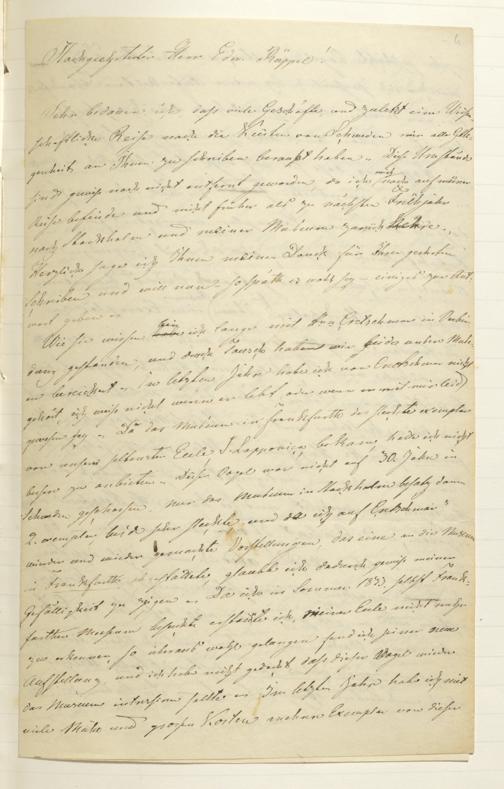 Hochgeehrter Herr Edw. Rüppel!
Sehr bedaure ich dass viele Geschäfte und zuletzt eine Wissen-
schaftliche Reise nach die Küsten von Schweden mir alle Gelle-
genheit an Ihnen zu schreiben beraubt haben. Diese Umstände
sind gewiss noch nicht entfernt geworden, da ich mich noch auf meiner
Reise befinde und nicht früher als zu nächsten Frühjahr
nach Stockholm und meiner Museum zurück
Herzlich sage ich Ihnen meinen Danck für Ihren geehrten
Schreiben und will nun, so späth es wohl sey – einiges zur Ant-
wort geben.
Wie sie wissen bin ich lange mit Hrn Cretschmar in Verbin-
dung gestanden, und durch Tausch haben wir beide unsere Muse-
en bereichert. In letzten Jahre habe ich von Cretschmar nichts
gehört, ich weiss nicht wenn er lebt oder wenn er mit mir
gewesen sey. Da das Museum in Frankfurth das sechste exemplar
von unsere seltensten Eule S. Lapponica bekam, hatte ich nicht
besser zu anbieten. Dieser Vogel war nicht auf 30 Jahre in
Schweden geschossen, nur das Museum in Stockholm besass dann
2 exemplar, beide sehr schlecht, und da ich auf Cretschmar's
wieder und wieder gemachte Vorstellungen, das eine an die Museum
in Frankfurth, glaubte ich dadurch gewiss meiner
Gefälligkeit zu zeigen. Da ich in Sommer 1833 selbst Frank-
further Museum besuchte erstaunte ich, meiner Eule nicht mehr
zu erkennen, so überaus wohl gelungen fand ich seiner neue
Aufstellung und ich habe nicht gedacht dass dieser Vogel wieder
das Museum sollte. Im letzten Jahre habe ich mit
viele Mühe und grossen Kosten mehrere Exemplar von dieser